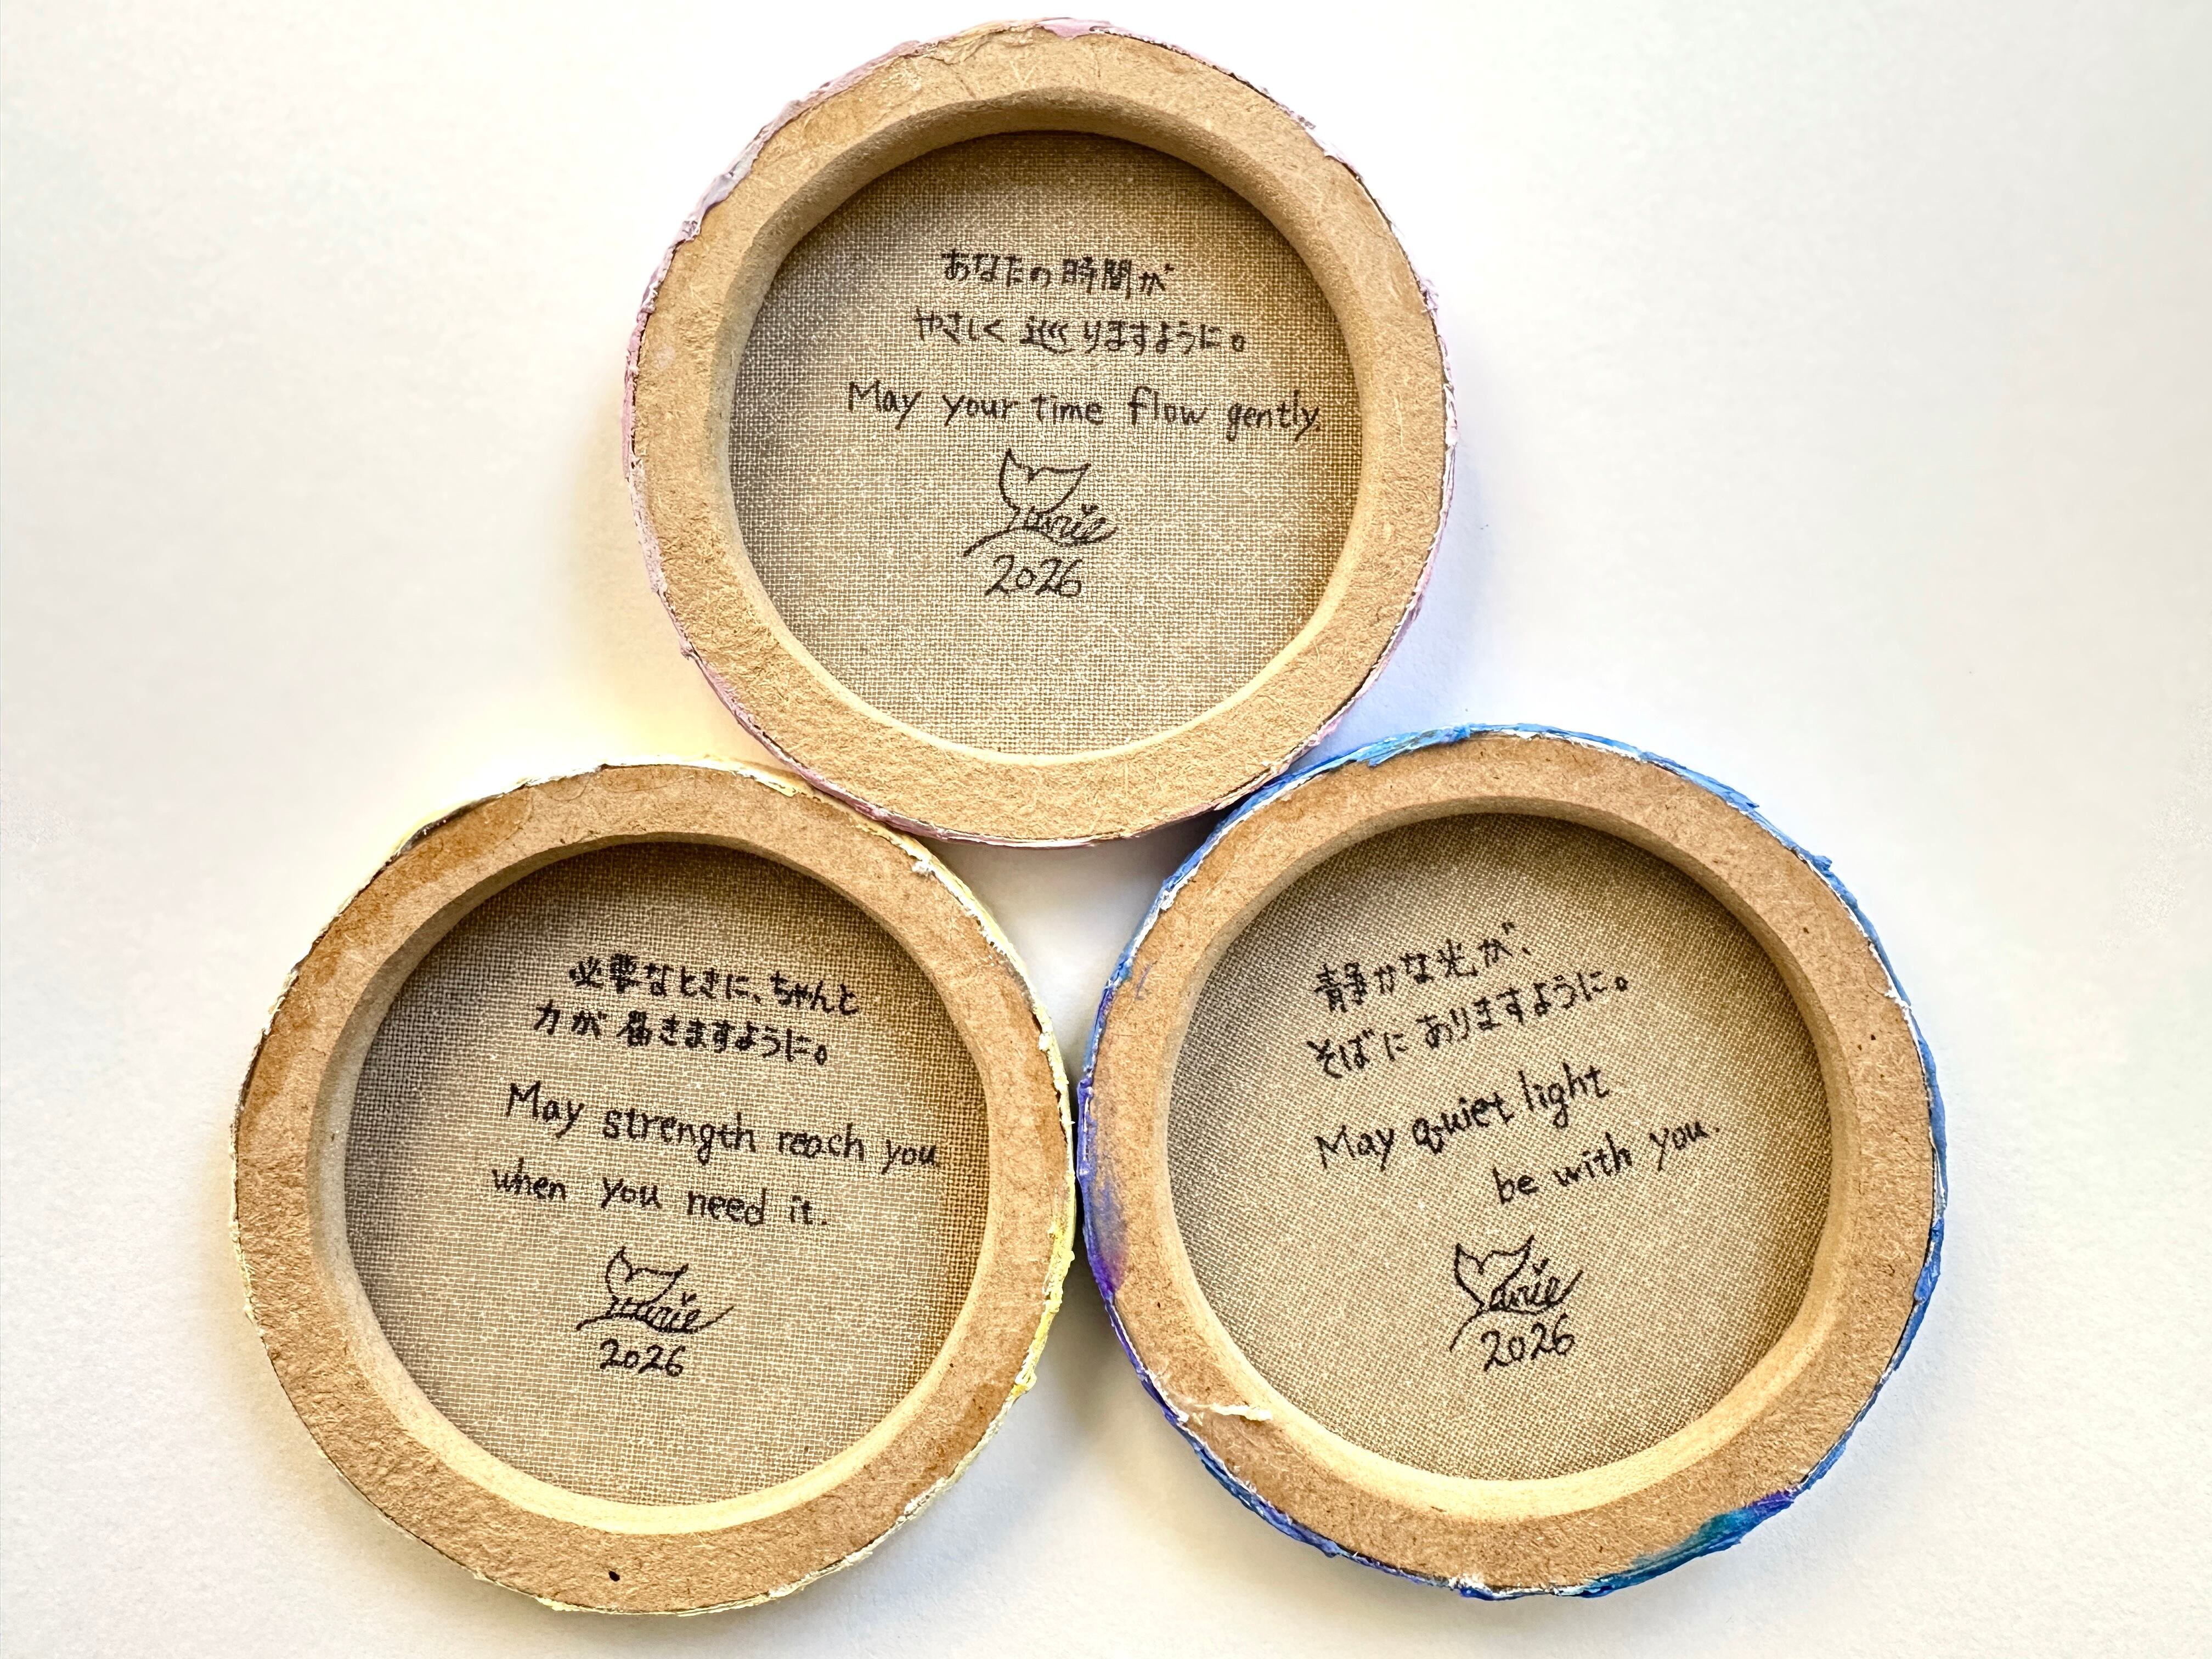 あなたの時間が
やさしく巡りますように。
May your time flow gently.
Marie
2026
必要なときに、ちゃんと
力が届きますように。
May strength reach you
when you need it.
Marie
2026
静かな光が、
そばにありますように。
May quiet light
be with you.
Marie
2026